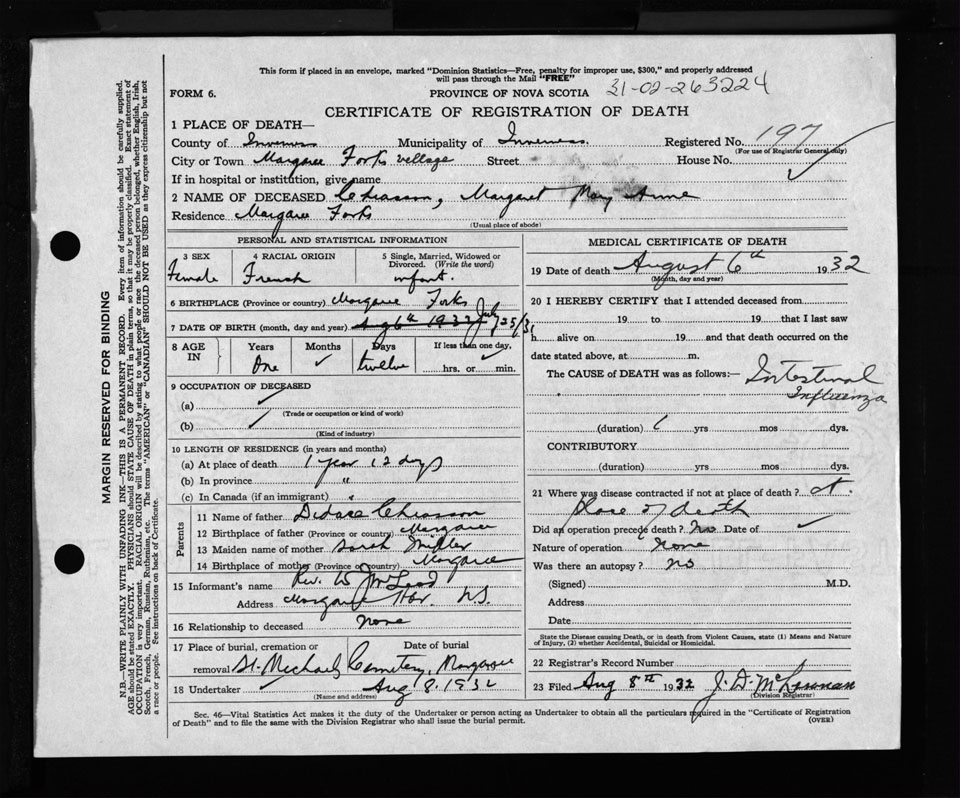 This form if placed in an envelope, marked "Dominion Statistics—Free, penalty for improper use, $300," and properly addressed
will pass through the Mail "FREE"
FORM 6. PROVINCE OF NOVA SCOTIA 31-02-263224
CERTIFICATE OF REGISTRATION OF DEATH
1 PLACE OF DEATH—
County of Inverness Municipality of Inverness Registered No. 197
(For use of Registrar General only)
City or Town Margaree Forks village Street House No.
If in hospital or institution, give name
2 NAME OF DECEASED Chiasson, Margaret Mary Anne
Residence Margaree Forks
(Usual place of abode)
PERSONAL AND STATISTICAL INFORMATION
3 SEX 4 RACIAL ORIGIN 5 Single, Married, Widowed or
Divorced. (Write the word)
Female French infant.
6 BIRTHPLACE (Province or country) Margaree Forks
7 DATE OF BIRTH (month, day and year) Aug 6th 1932 July 25/31
8 AGE IN Years Months Days If less than one day,
One ✓ twelve hrs. or min.
9 OCCUPATION OF DECEASED
(a) ✓
(Trade or occupation or kind of work)
(b) ✓
(Kind of industry)
10 LENGTH OF RESIDENCE (in years and months)
(a) At place of death 1 year 12 days
(b) In province "
(c) In Canada (if an immigrant) "
Parents
11 Name of father Didace Chiasson
12 Birthplace of father (Province or country) Margaree
13 Maiden name of mother Sarah
14 Birthplace of mother (Province or country) Margaree
15 Informant's name Rev. W J McLeod
Address Margaree Hbr. N.S.
16 Relationship to deceased none
17 Place of burial, cremation or Date of burial
removal St. Michaels Cemetery, Margaree
18 Undertaker ✓ Aug 8. 1932
(Name and address)
MEDICAL CERTIFICATE OF DEATH
19 Date of death August 6th 1932
(Month, day and year)
20 I HEREBY CERTIFY that I attended deceased from
19 to 19 that I last saw
h alive on 19 and that death occurred on the
date stated above, at m.
The CAUSE of DEATH was as follows:— Intestinal
Influenza
(duration) yrs mos dys.
CONTRIBUTORY
(duration) yrs mos dys.
21 Where was disease contracted if not at place of death? at
place of death
Did an operation precede death? No Date of ✓
Nature of operation none
Was there an autopsy? no
(Signed) M.D.
Address
Date
State the Disease causing Death, or in death from Violent Causes, state (1) Means and Nature
of Injury, (2) whether Accidental, Suicidal or Homicidal.
22 Registrar's Record Number
23 Filed Aug 8th 1932 J. D. McLennan
(Division Registrar)
Sec. 46—Vital Statistics Act makes it the duty of the Undertaker or person acting as Undertaker to obtain all the particulars required in the "Certificate of Registration
of Death" and to file the same with the Division Registrar who shall issue the burial permit. (OVER)
MARGIN RESERVED FOR BINDING
N.B.—WRITE PLAINLY WITH UNFADING INK—THIS IS A PERMANENT RECORD. Every item of information should be carefully supplied.
AGE should be stated EXACTLY. PHYSICIANS should STATE CAUSE OF DEATH in plain terms, so that it may be properly classified. Exact statement of
OCCUPATION is very important. RACIAL ORIGIN will be described by stating to what people or race the deceased person belonged, whether English, Irish,
Scotch, French, German, Russian, Ruthenian, etc. The terms "AMERICAN" or "CANADIAN" SHOULD NOT BE USED as they express citizenship but not
a race or people. See instructions on back of Certificate.